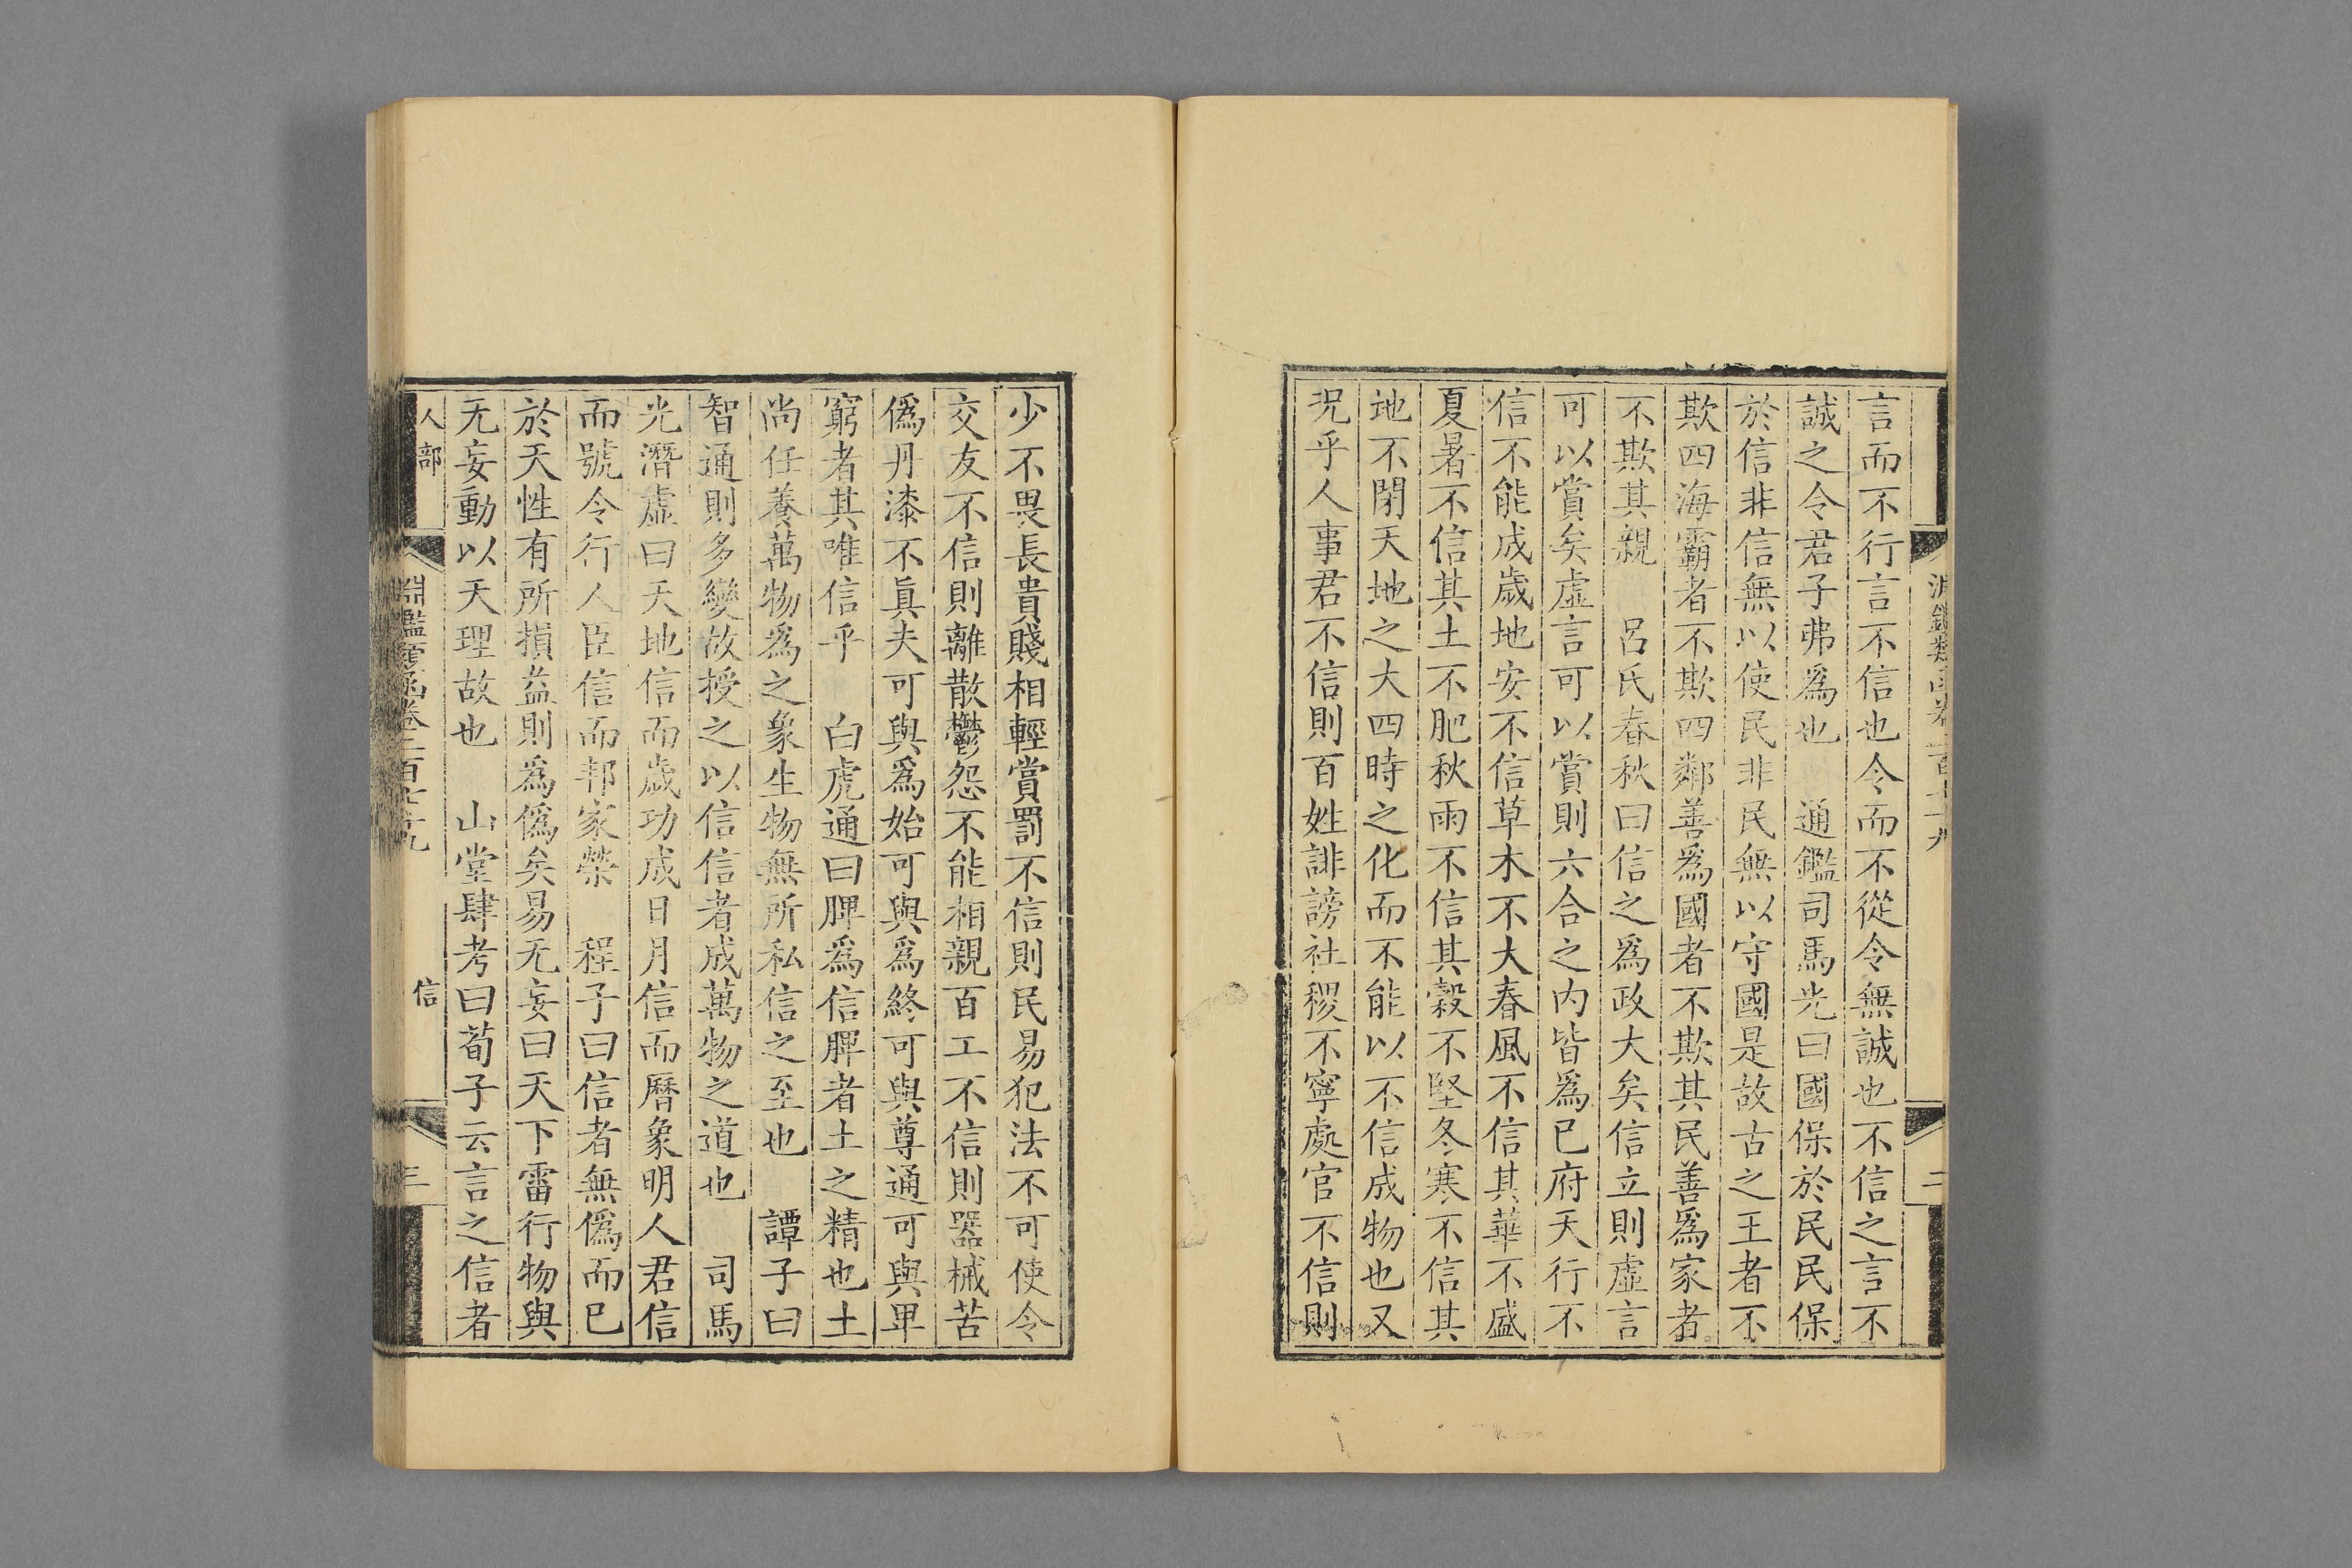 言而不行言不信也令而不從令無誠也不信之言不
誠之令君子弗爲也　通鑑司馬光曰國保於民民保
於信非信無以使民非民無以守國是故古之王者不
欺四海霸者不欺四鄰善爲國者不欺其民善爲家者
不欺其親　呂氏春秋曰信之爲政大矣信立則虛言
可以賞矣虛言可以賞則六合之內皆爲已府天行不
信不能成歲地安不信草木不大春風不信其華不盛
夏暑不信其土不肥秋雨不信其穀不堅冬寒不信其
地不閉天地之大四時之化而不能以不信成物也又
况乎人事君不信則百姓誹謗社稷不寧處官不信則
少不畏長貴賤相輕賞罰不信則民易犯法不可使令
交友不信則離散鬱怨不能相親百工不信則器械苦
僞丹漆不眞夫可與爲始可與爲終可與尊通可與畢
窮者其唯信乎　白虎通曰脾爲信脾者土之精也土
尚任養萬物爲之象生物無所私信之至也　譚子曰
智通則多變故授之以信信者成萬物之道也　司馬
光潛虛曰天地信而歲功成日月信而曆象明人君信
而號令行人臣信而邦家榮　程子曰信者無僞而已
於天性有所損益則爲僞矣易无妄曰天下雷行物與
无妄動以天理故也　山堂肆考曰荀子云言之信者
人部　淵鑑類函卷二百七十九　信　三